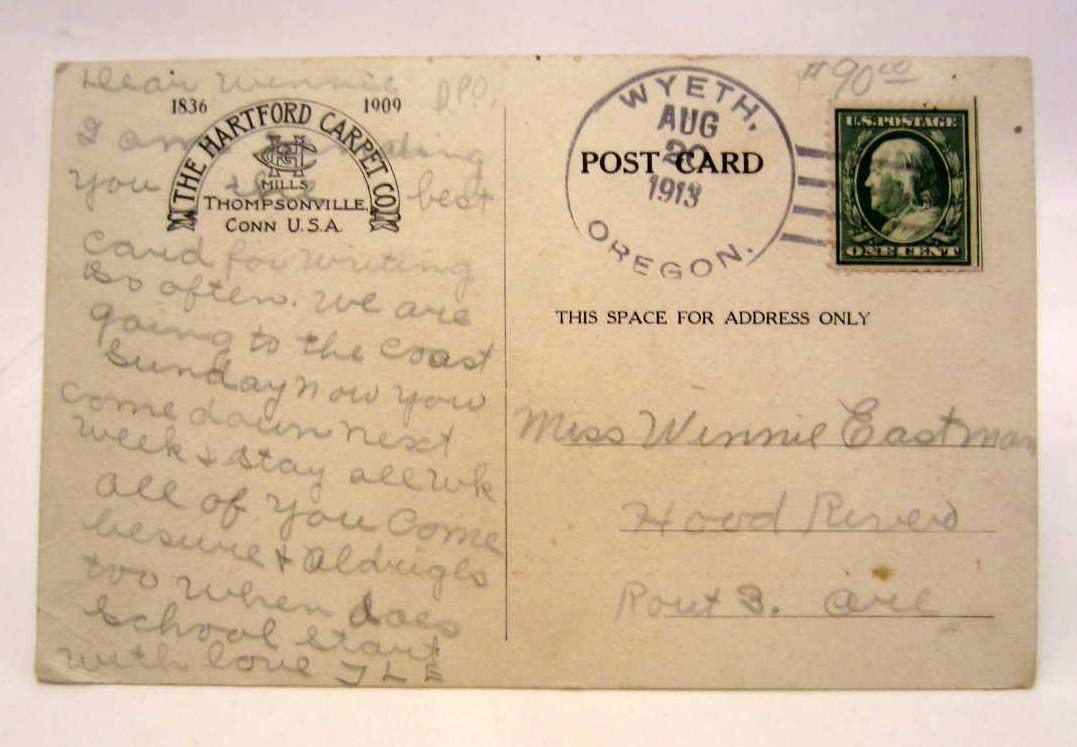 Dear Winnie
DPO.
1836 1909
THE HARTFORD CARPET CO.
MILLS
THOMPSONVILLE,
CONN U.S.A.
I am sending
you the best
card for writing
so often. We are
going to the coast
Sunday now you
come down next
week & stay all wk
all of you come
besure & Aldriges
too when does
school start
with love J L
WYETH,
AUG
20
1913
OREGON.
POST CARD
$90.00
U.S. POSTAGE
ONE CENT
THIS SPACE FOR ADDRESS ONLY
Miss Winnie Eastman
Hood River
Rout 3. Ore